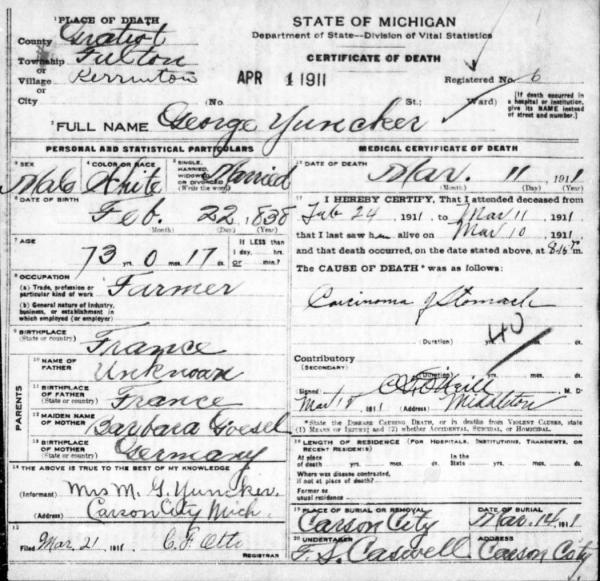 STATE OF MICHIGAN
Department of State—Division of Vital Statistics
CERTIFICATE OF DEATH
1 PLACE OF DEATH
County Gratiot
Township Fulton
or
Village Perrinton
or
City
APR 1 1911
Registered No. 6
(No. St.; Ward)
[If death occurred in a hospital or institution, give its NAME instead of street and number.]
2 FULL NAME George Yuncker
PERSONAL AND STATISTICAL PARTICULARS
3 SEX
Male
4 COLOR OR RACE
White
5 SINGLE, MARRIED, WIDOWED OR DIVORCED (Write the word)
Married
6 DATE OF BIRTH
Feb. 22, 1838
(Month) (Day) (Year)
7 AGE
73 yrs. 0 mos. 17 ds.
If LESS than 1 day, hrs. or min.?
8 OCCUPATION
(a) Trade, profession or particular kind of work Farmer
(b) General nature of industry, business, or establishment in which employed (or employer)
9 BIRTHPLACE
(State or country) France
PARENTS
10 NAME OF FATHER Unknown
11 BIRTHPLACE OF FATHER
(State or country) France
12 MAIDEN NAME OF MOTHER Barbara Goesel
13 BIRTHPLACE OF MOTHER
(State or country) Germany
14 THE ABOVE IS TRUE TO THE BEST OF MY KNOWLEDGE
(Informant) Mrs M. G. Yuncker.
Carson City Mich.
15
Filed Mar. 21 1911 C. F. Otto
REGISTRAR
MEDICAL CERTIFICATE OF DEATH
16 DATE OF DEATH
Mar. 11 1911
(Month) (Day) (Year)
17 I HEREBY CERTIFY, That I attended deceased from
Feb 24, 1911 to Mar 11 1911
that I last saw him alive on Mar 10 1911
and that death occurred, on the date stated above, at m.
The CAUSE OF DEATH* was as follows:
Carcinoma of Stomach
40
(Duration) yrs. mos. ds.
Contributory
(SECONDARY)
(Duration) yrs. mos. ds.
Signed M. D.
1911 (Address) Middleton
*State the DISEASE CAUSING DEATH, or in deaths from VIOLENT CAUSES, state (1) MEANS OF INJURY; and (2) whether ACCIDENTAL, SUICIDAL, or HOMICIDAL.
18 LENGTH OF RESIDENCE (FOR HOSPITALS, INSTITUTIONS, TRANSIENTS, OR RECENT RESIDENTS)
At place of death yrs. mos. ds. In the State yrs. mos. ds.
Where was disease contracted, if not at place of death?
Former or usual residence
19 PLACE OF BURIAL OR REMOVAL
Carson City
DATE OF BURIAL
Mar. 14 1911
20 UNDERTAKER
F. S. Caswell
ADDRESS
Carson City